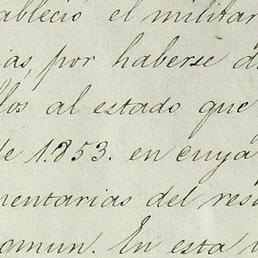 ableció el militar
ias, por haberse d
llos al estado que
de 1.853. en cuya
mentarias del res
comun. En esta